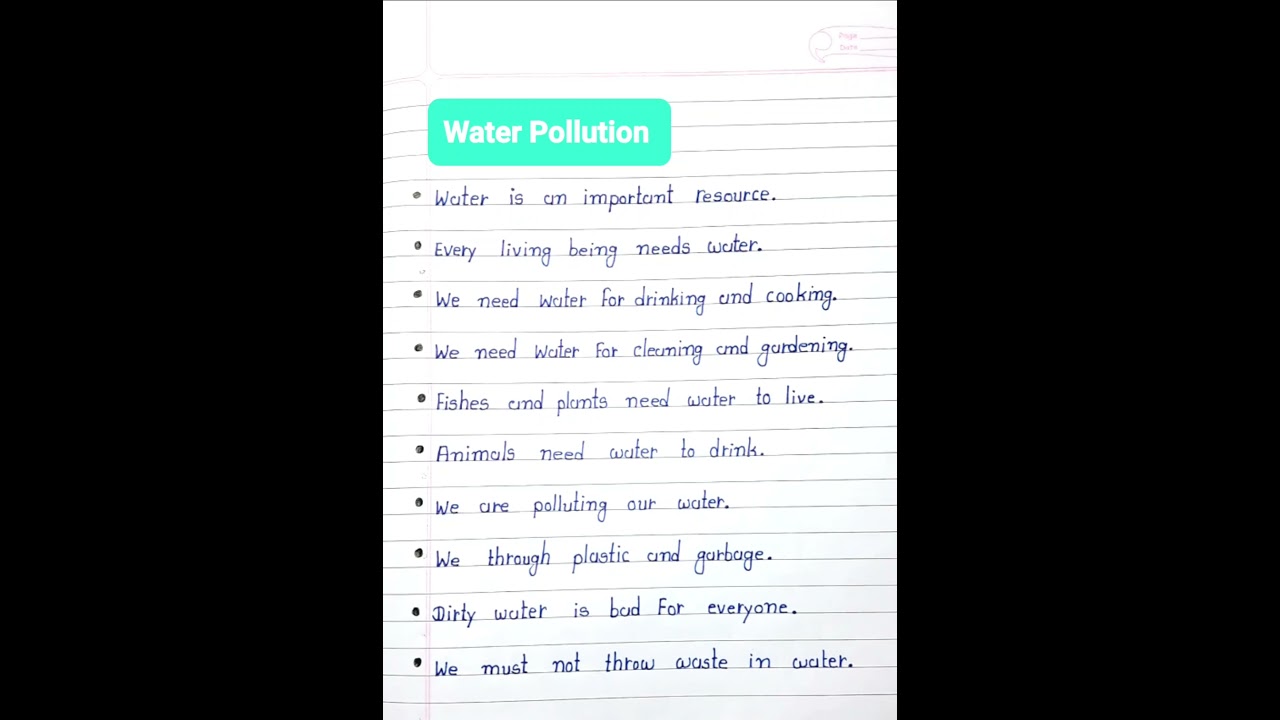 Page
Date
Water Pollution
• Water is an important resource.
• Every living being needs water.
• We need water for drinking and cooking.
• We need water for cleaning and gardening.
• Fishes and plants need water to live.
• Animals need water to drink.
• We are polluting our water.
• We through plastic and garbage.
• Dirty water is bad for everyone.
• We must not throw waste in water.